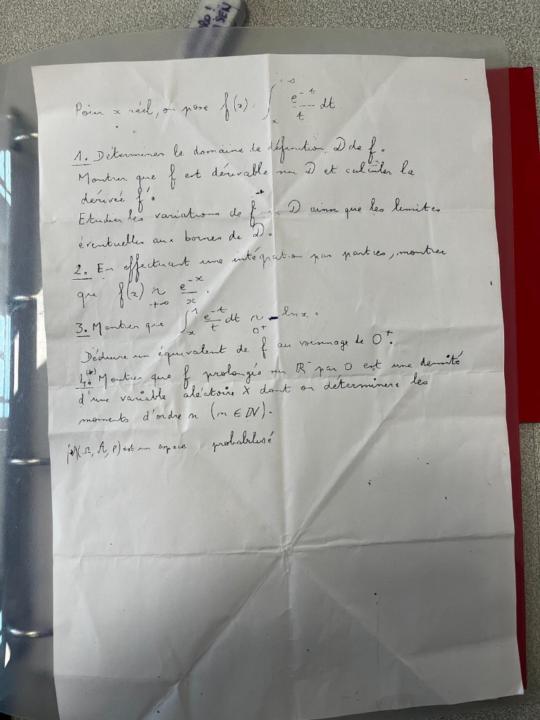 Pour x réel, on pose f(x) = ∫_x^{+∞} e^{-t}/t dt
1. Déterminer le domaine de définition D de f.
Montrer que f est dérivable sur D et calculer la
dérivée f'.
Etudier les variations de f D ainsi que les limites
éventuelles aux bornes de D.
2. En effectuant une intégration par parties, montrer
que f(x) ~_{+∞} e^{-x}/x.
3. Montrer que ∫_x^1 e^{-t}/t dt ~_{0+} -ln x.
Déduire un équivalent de f au voisinage de 0+.
4. (*) Montrer que f prolongée sur ℝ⁻ par 0 est une densité
d'une variable aléatoire X dont on déterminera les
moments d'ordre n (n ∈ ℕ).
(*) (Ω, A, P) est un espace probabilisé